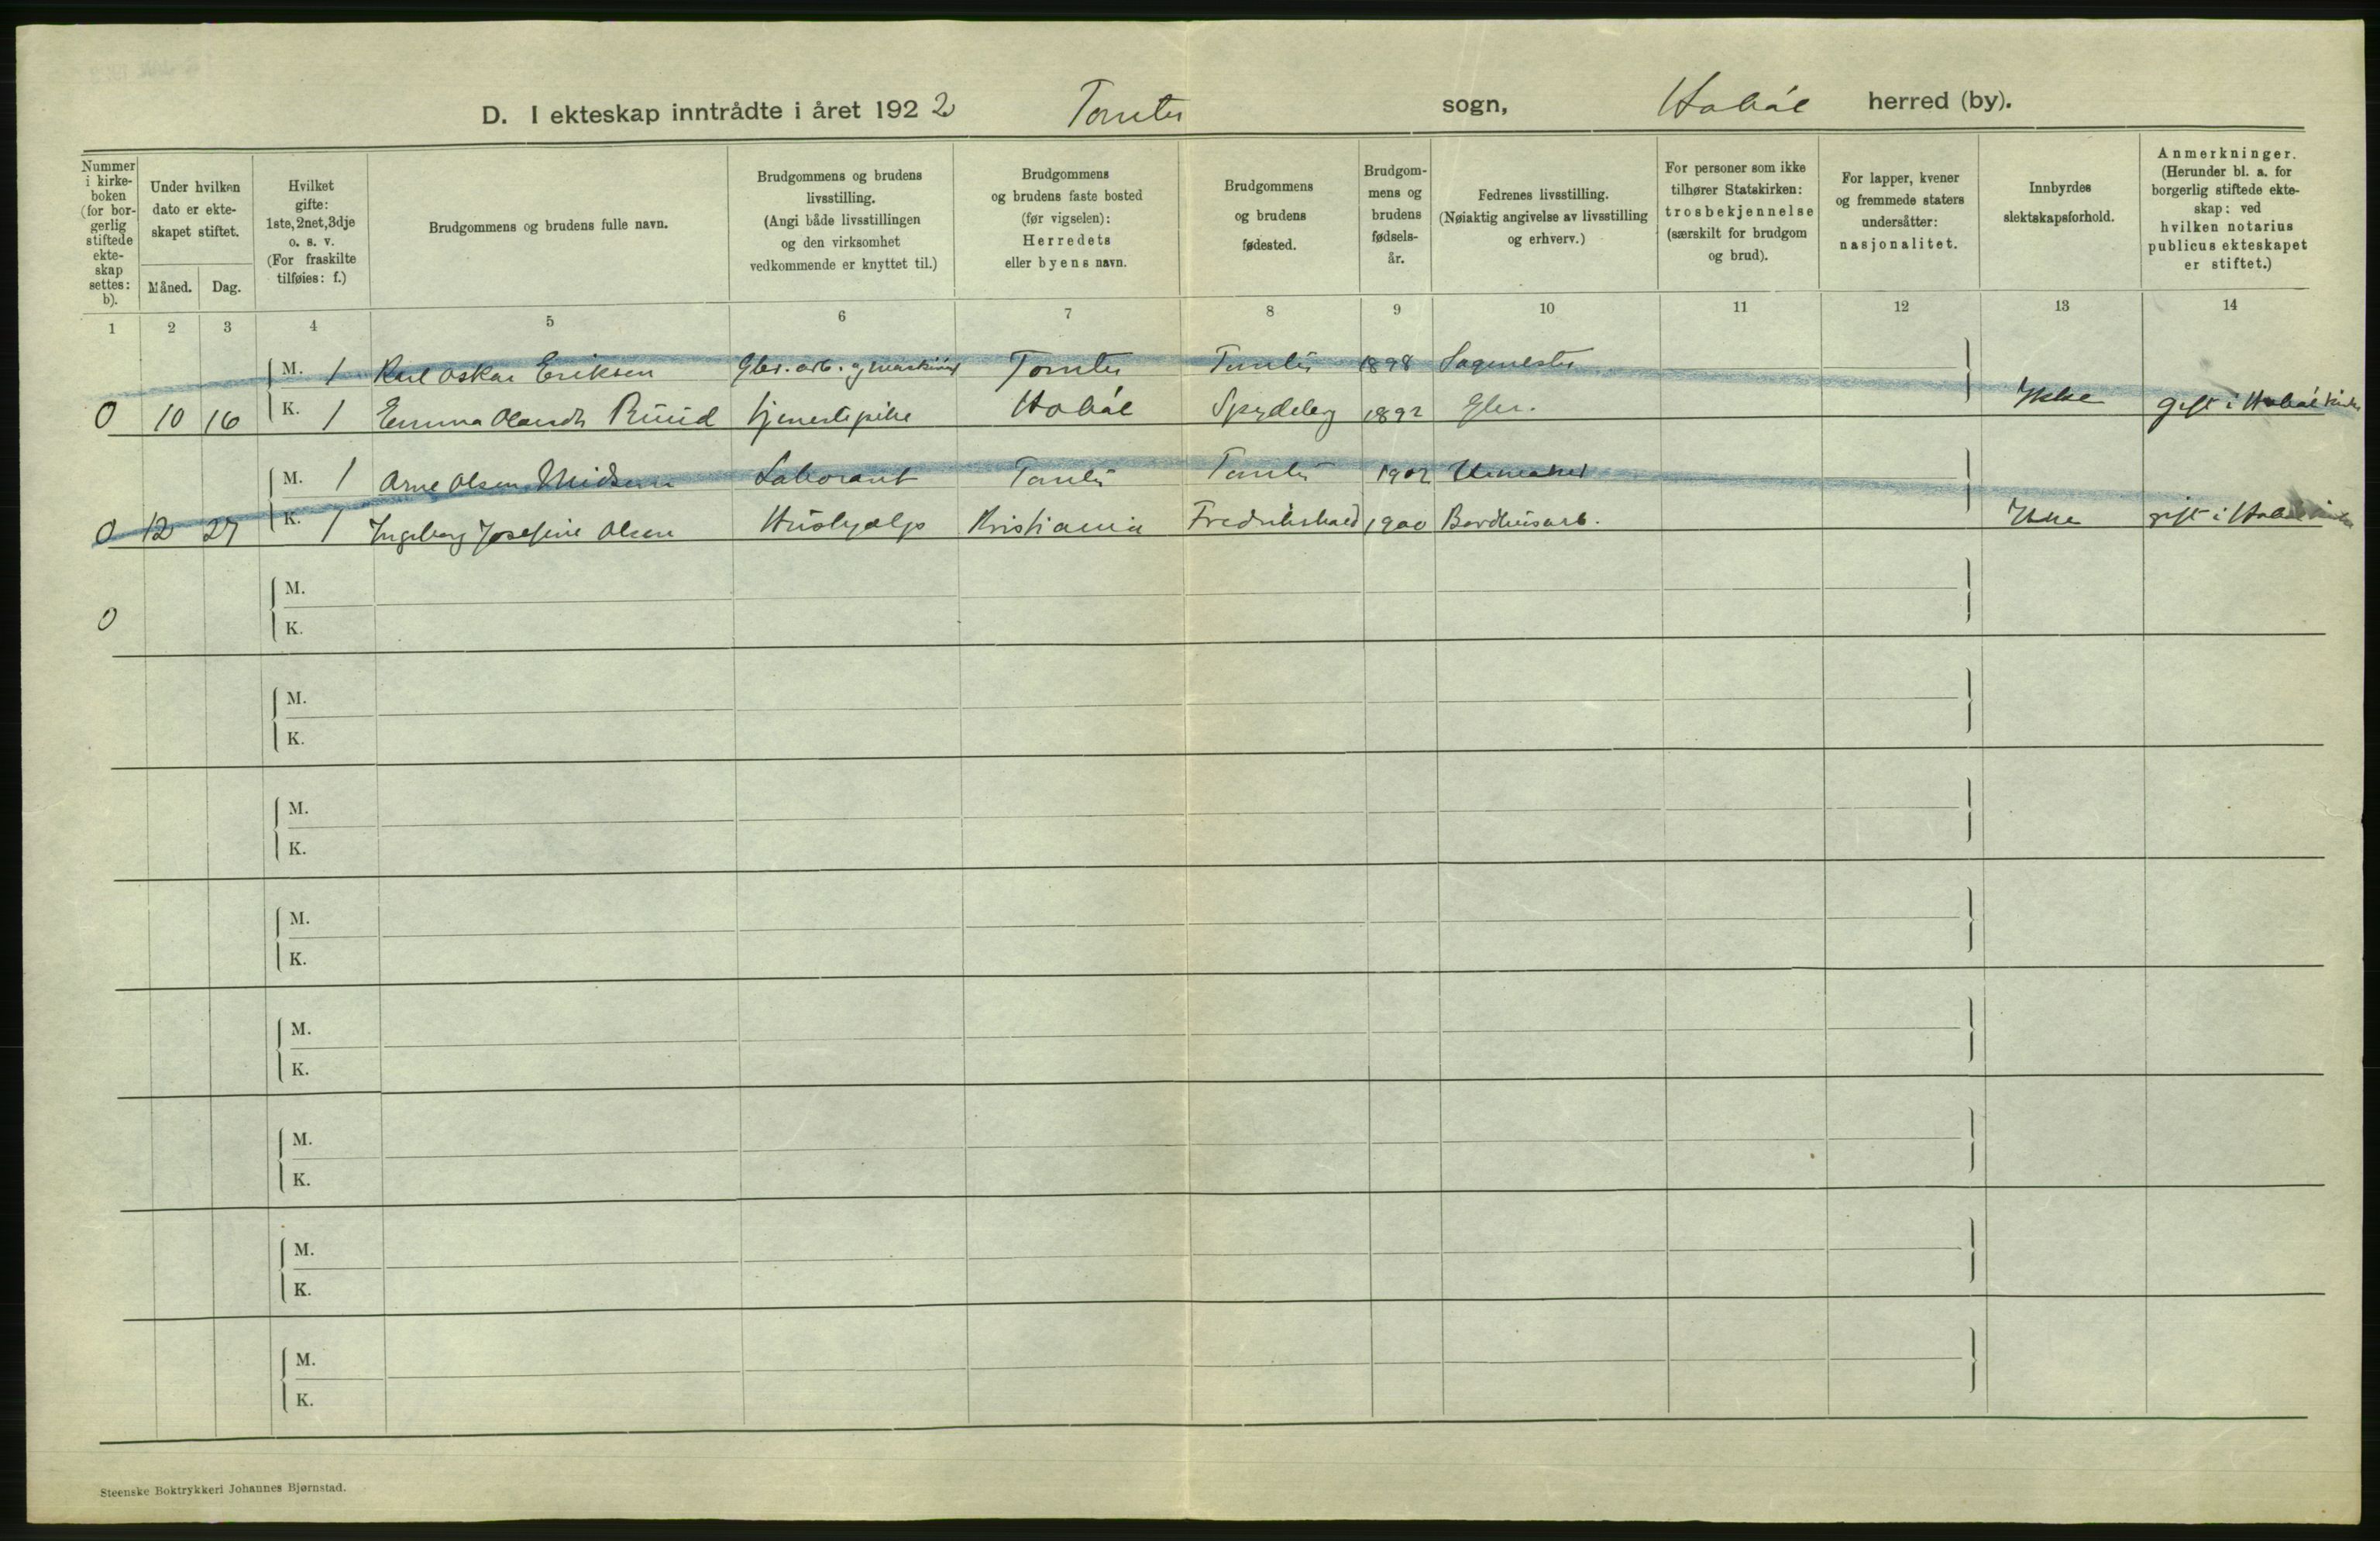 D. I ekteskap inntrådte i året 1922 Tomter sogn, Hobøl herred (by).
Nummer
i kirke-
boken
(for bor-
gerlig
stiftede
ekte-
skap
settes:
b).
Under hvilken
dato er ekte-
skapet stiftet.
Måned. Dag.
Hvilket
gifte:
1ste, 2net, 3dje
o. s. v.
(For fraskilte
tilføies: f.)
Brudgommens og brudens fulle navn.
Brudgommens og brudens
livsstilling.
(Angi både livsstillingen
og den virksomhet
vedkommende er knyttet til.)
Brudgommens
og brudens faste bosted
(før vigselen):
Herredets
eller byens navn.
Brudgommens
og brudens
fødested.
Brudgom-
mens og
brudens
fødsels-
år.
Fedrenes livsstilling.
(Nøiaktig angivelse av livsstilling
og erhverv.)
For personer som ikke
tilhører Statskirken:
trosbekjennelse
(særskilt for brudgom
og brud).
For lapper, kvener
og fremmede staters
undersåtter:
nasjonalitet.
Innbyrdes
slektskapsforhold.
Anmerkninger.
(Herunder bl. a. for
borgerlig stiftede ekte-
skap: ved
hvilken notarius
publicus ekteskapet
er stiftet.)
1 2 3 4 5 6 7 8 9 10 11 12 13 14
M. 1 Karl Oskar Eriksen Gbr. arb. og Tomter Tomter 1898 Sagmester
0 10 16 K. 1 Emma Ruud tjenestepike Hobøl Spydeberg 1892 Gbr. Ikke gift i Hobøl kirke
M. 1 Arne Olsen Laborant Tomter Tomter 1902 Urmaker
0 12 27 K. 1 Ingeborg Josefine Olsen Hushjælp Kristiania Fredrikshald 1900 Bordhusarb. Ikke gift i Hobøl
M.
0
K.
M.
K.
M.
K.
M.
K.
M.
K.
M.
K.
M.
K.
M.
K.
Steenske Boktrykkeri Johannes Bjørnstad.